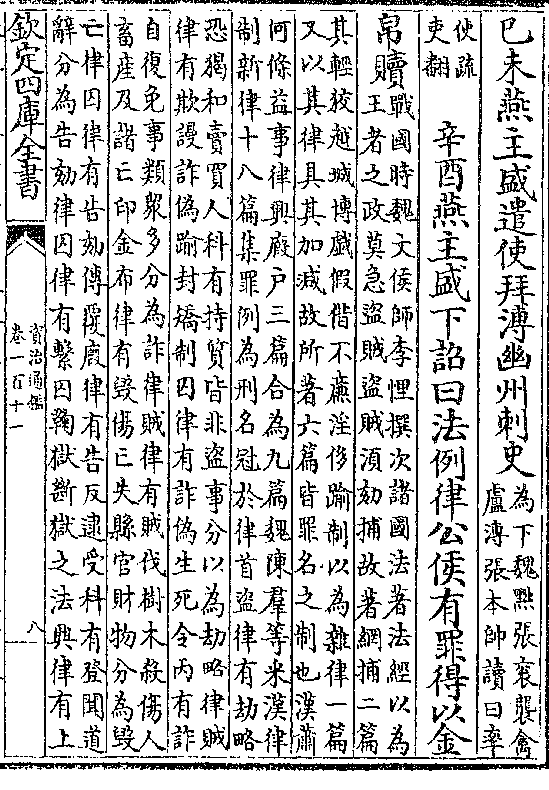 使疏
吏翻
己未燕主盛遣使拜溥幽州刺史
為下魏㸃張衮襲禽
盧溥張本帥讀曰率
辛酉燕主盛下詔曰法例律公侯有罪得以金
帛贖
戰國時魏文侯師李悝撰次諸國法著法經以為
王者之政莫急盜賊盜賊湏劾捕故著網捕二篇
其輕狡越城博戲假借不亷淫侈踰制以為雜律一篇
又以其律具其加減故所著六篇皆罪名之制也漢蕭
何條益事律興廐户三篇合為九篇魏陳羣等采漢律
制新律十八篇集罪例為刑名冠於律首盜律有劫略
恐猲和賣買人科有持質皆非盜事分以為劫略律賊
律有欺謾詐偽踰封矯制囚律有詐偽生死令丙有詐
自復免事類衆多分為詐律賊律有賊伐樹木殺傷人
畜産及諸亡印金布律有毁傷亡失縣官財物分為毁
亡律囚律有告劾傳覆廐律有告反逮受科有登聞道
辭分為告劾律囚律有繫囚鞫獄斷獄之法興律有上
欽定四庫全書
資治通鑑
卷一百十一
八